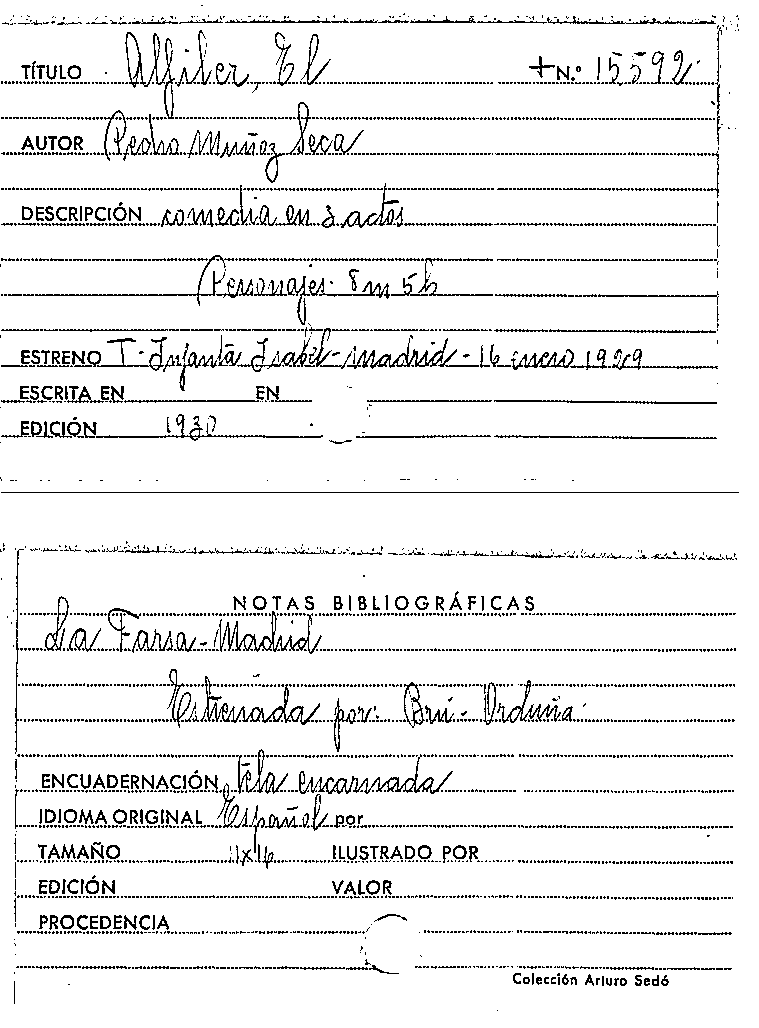 TÍTULO Alfiler, El +N.º 15592
AUTOR Pedro Muñoz Seca
DESCRIPCIÓN comedia en 3 actos
Personajes- 8m 5h
ESTRENO T. Infanta Isabel-Madrid-16 enero 1929
ESCRITA EN EN
EDICIÓN 1930
NOTAS BIBLIOGRÁFICAS
La Farsa-Madrid
Estrenada por: Brú-Orduña
ENCUADERNACIÓN tela encarnada
IDIOMA ORIGINAL Español por
TAMAÑO 11x16 ILUSTRADO POR
EDICIÓN VALOR
PROCEDENCIA
Colección Arturo Sedó